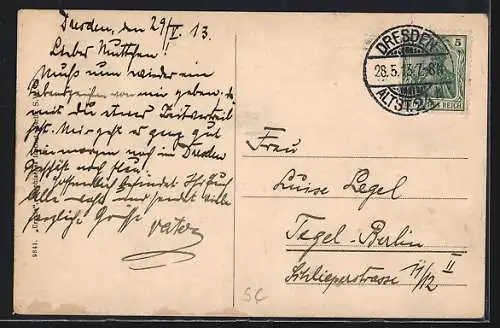 Dresden, den 29/V. 13.
Lieber Mutthen!
Muss nun wieder ein
Lebenszeichen von mir geben, da
mit du etwas Zeitvertreib
hast. Mir geht es ganz gut
bin morgen noch in Dresden
Hoffentlich befindet Ihr Euch
Alle wohl und sendet viele
herzliche Grüsse
Vater
DRESDEN
28.5.13.7-8N.
ALTST.
5
REICH
Frau
Luise Legel
Tegel-Berlin
Schlieperstrasse 11/12 II
9841.
5C